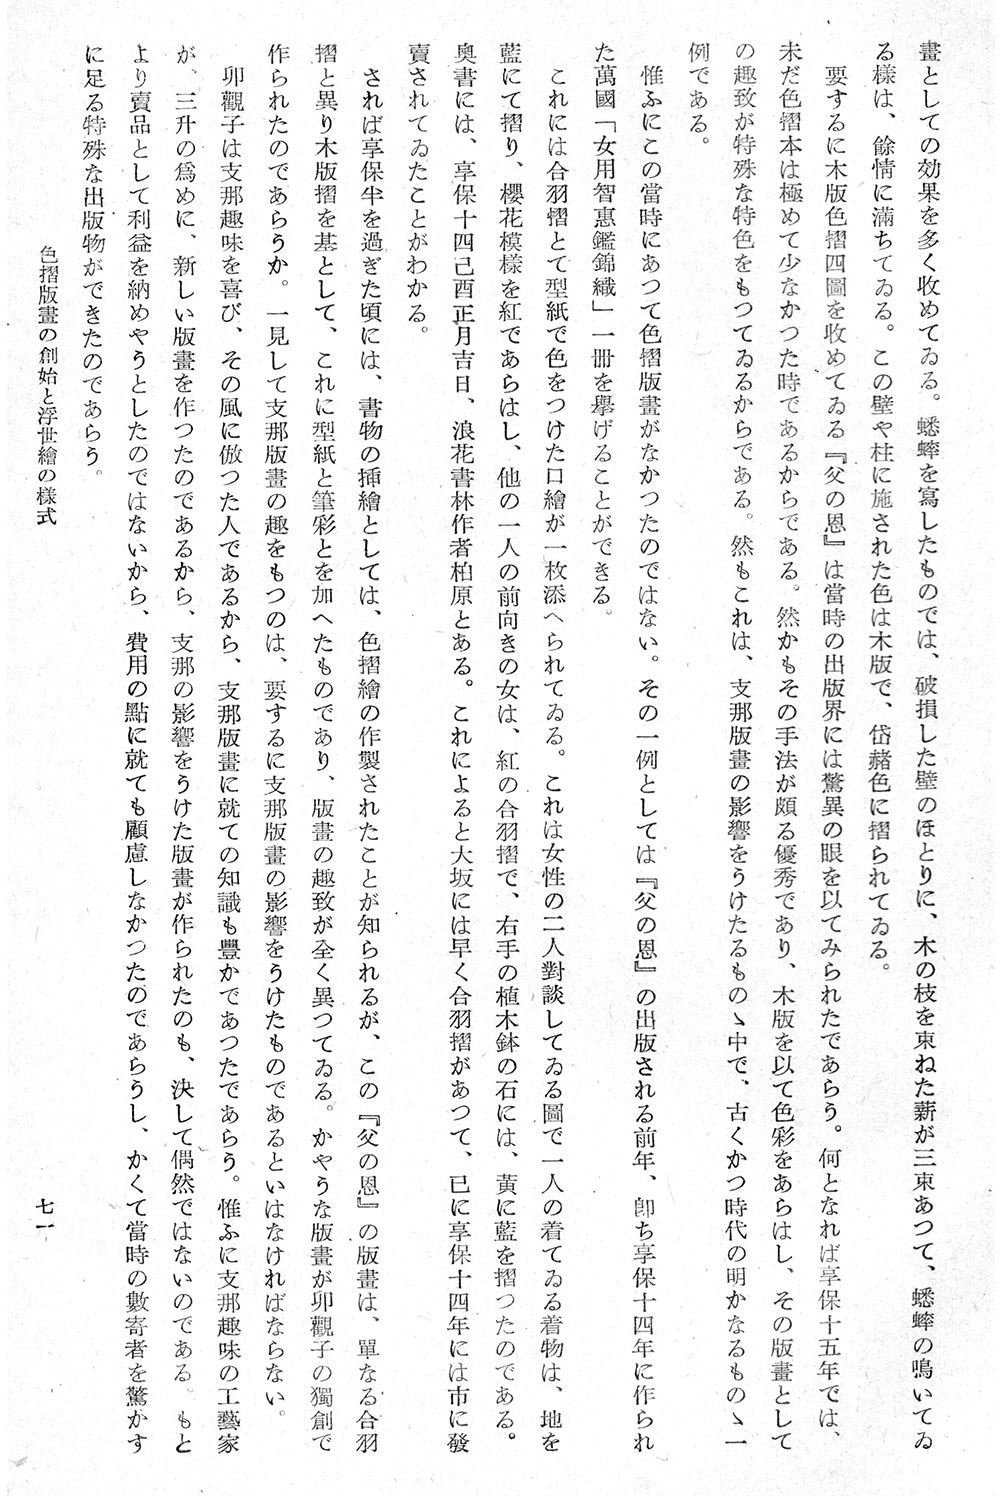 畫としての効果を多く收めてゐる。蟋蟀を寫したものでは、破損した壁のほとりに、木の枝を束ねた薪が三束あつて、蟋蟀の鳴いてゐ
る樣は、餘情に滿ちてゐる。この壁や柱に施された色は木版で、岱赭色に摺られてゐる。
要するに木版色摺四圖を收めてゐる『父の恩』は當時の出版界には驚異の眼を以てみられたであらう。何となれば享保十五年では、
未だ色摺本は極めて少なかつた時であるからである。然かもその手法が頗る優秀であり、木版を以て色彩をあらはし、その版畫として
の趣致が特殊な特色をもつてゐるからである。然もこれは、支那版畫の影響をうけたるものゝ中で、古くかつ時代の明かなるものゝ一
例である。
惟ふにこの當時にあつて色摺版畫がなかつたのではない。その一例としては『父の恩』の出版される前年、卽ち享保十四年に作られ
た萬國「女用智惠鑑錦織」一冊を擧げることができる。
これには合羽摺とて型紙で色をつけた口繪が一枚添へられてゐる。これは女性の二人對談してゐる圖で一人の着てゐる着物は、地を
藍にて摺り、櫻花模樣を紅であらはし、他の一人の前向きの女は、紅の合羽摺で、右手の植木鉢の石には、黃に藍を摺つたのである。
奧書には、享保十四己酉正月吉日、浪花書林作者柏原とある。これによると大坂には早く合羽摺があつて、已に享保十四年には市に發
賣されてゐたことがわかる。
されば享保半を過ぎた頃には、書物の揷繪としては、色摺繪の作製されたことが知られるが、この『父の恩』の版畫は、單なる合羽
摺と異り木版摺を基として、これに型紙と筆彩とを加へたものであり、版畫の趣致が全く異つてゐる。かやうな版畫が卯觀子の獨創で
作られたのであらうか。一見して支那版畫の趣をもつのは、要するに支那版畫の影響をうけたものであるといはなければならない。
卯觀子は支那趣味を喜び、その風に倣つた人であるから、支那版畫に就ての知識も豐かであつたであらう。惟ふに支那趣味の工藝家
が、三升の爲めに、新しい版畫を作つたのであるから、支那の影響をうけた版畫が作られたのも、決して偶然ではないのである。もと
より賣品として利益を納めやうとしたのではないから、費用の點に就ても顧慮しなかつたのであらうし、かくて當時の數寄者を驚かす
に足る特殊な出版物ができたのであらう。
色摺版畫の創始と浮世繪の樣式
七一